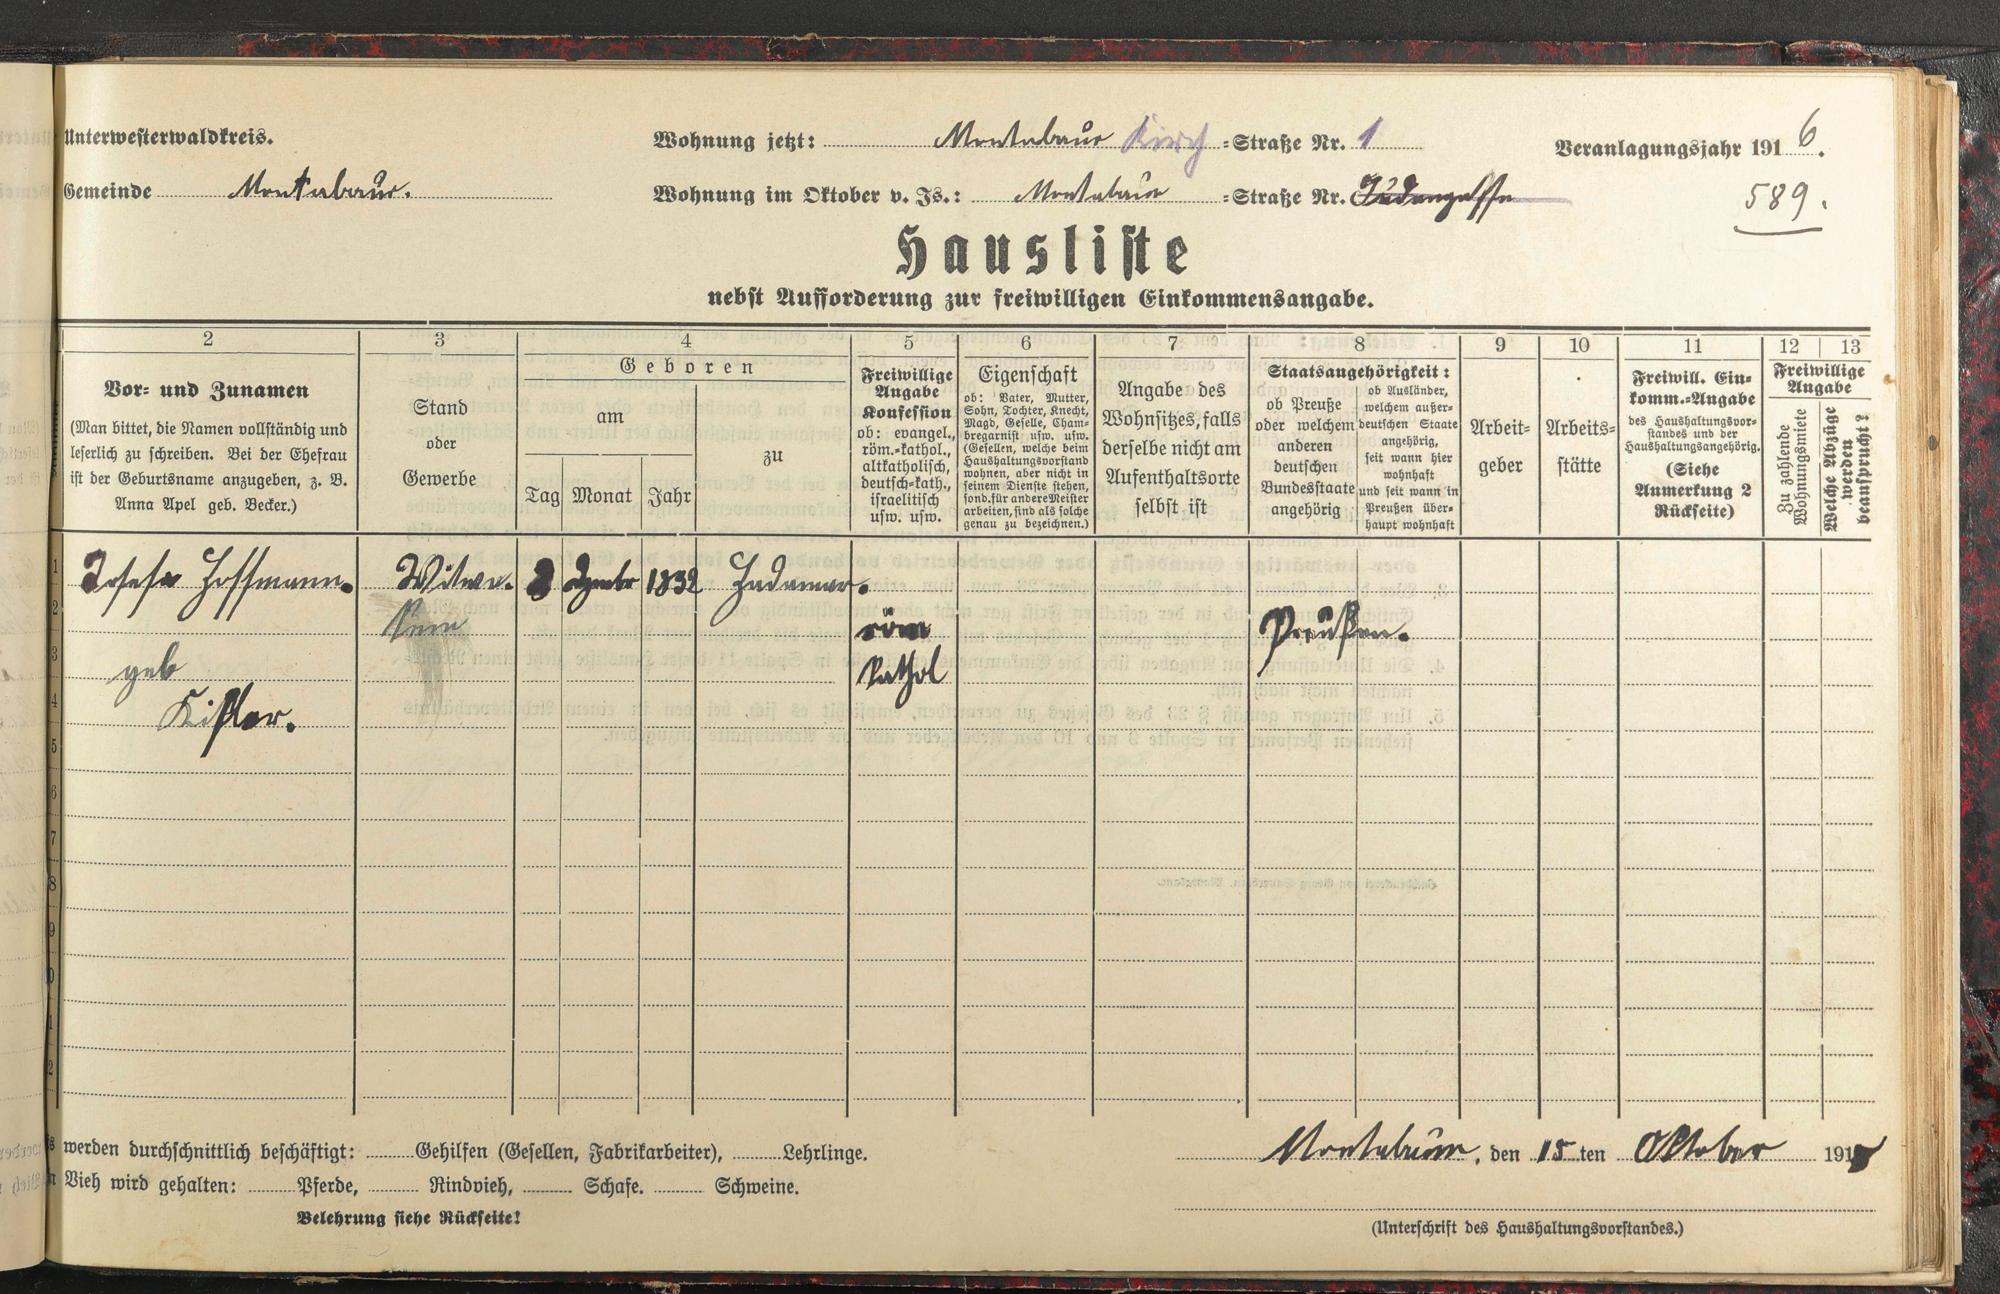 Unterwesterwaldkreis.
Wohnung jetzt: Montabaur Kirch =Straße Nr. 1
Veranlagungsjahr 1916.
Gemeinde Montabaur.
Wohnung im Oktober v. Js.: Montabaur =Straße Nr. Judengasse
589.
Hausliste
nebst Aufforderung zur freiwilligen Einkommensangabe.
2 3 4 5 6 7 8 9 10 11 12 13
Vor- und Zunamen
(Man bittet, die Namen vollständig und
leserlich zu schreiben. Bei der Ehefrau
ist der Geburtsname anzugeben, z. B.
Anna Apel geb. Becker.)
Stand
oder
Gewerbe
Geboren
am
Tag Monat Jahr
zu
Freiwillige
Angabe
Konfession
ob: evangel.,
röm.-kathol.,
altkatholisch,
deutsch-kath.,
israelitisch
usw. usw.
Eigenschaft
ob: Vater, Mutter,
Sohn, Tochter, Knecht,
Magd, Geselle, Cham-
bregarnist usw. usw.
(Gesellen, welche beim
Haushaltungsvorstand
wohnen, aber nicht in
seinem Dienste stehen,
sond. für andere Meister
arbeiten, sind als solche
genau zu bezeichnen.)
Angabe des
Wohnsitzes, falls
derselbe nicht am
Aufenthaltsorte
selbst ist
Staatsangehörigkeit:
ob Preuße
oder welchem
anderen
deutschen
Bundesstaate
angehörig
ob Ausländer,
welchem außer-
deutschen Staate
angehörig,
seit wann hier
wohnhaft
und seit wann in
Preußen über-
haupt wohnhaft
Arbeit-
geber
Arbeits-
stätte
Freiwill. Ein-
komm.-Angabe
des Haushaltungsvor-
standes und der
Haushaltungsangehörig.
(Siehe
Anmerkung 2
Rückseite)
Freiwillige
Angabe
Zu zahlende
Wohnungsmiete
Welche Abzüge
werden
beansprucht?
1 Josefa Hoffmann. Witwe. 3 Dezembr 1832 Hadamar.
2 röm Preußen.
3 geb kathol
4 Kißler.
5
6
7
8
9
0
1
2
werden durchschnittlich beschäftigt: Gehilfen (Gesellen, Fabrikarbeiter), Lehrlinge.
Montabaur, den 15 ten Oktober 1915
Vieh wird gehalten: Pferde, Rindvieh, Schafe. Schweine.
Belehrung siehe Rückseite!
(Unterschrift des Haushaltungsvorstandes.)